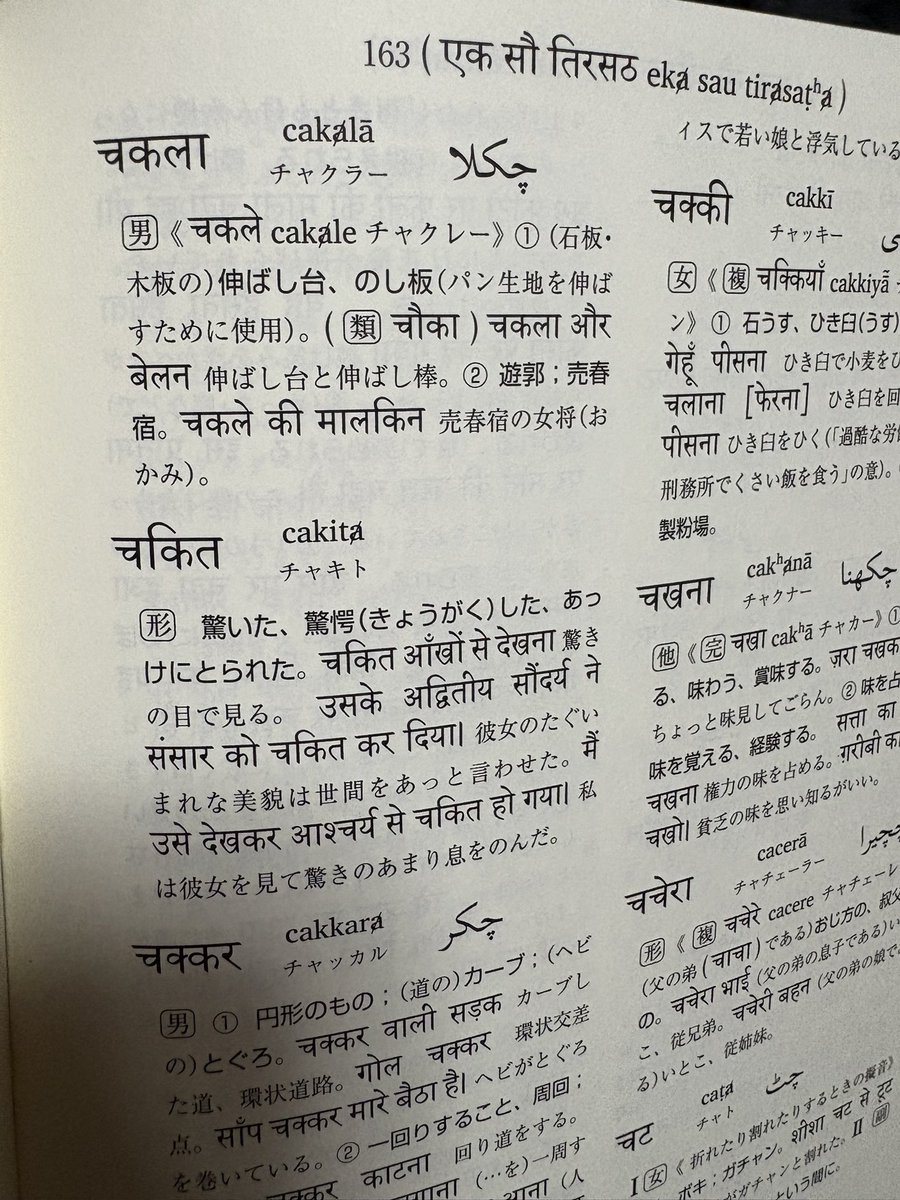 163 ( एक सौ तिरसठ ekₐ̸ sau tirₐ̸saṭʰₐ̸ )
चकला cakₐ̸lā چکلا
チャクラー
男《 चकले cakₐ̸le チャクレー》① (石板・
木板の)伸ばし台、のし板(パン生地を伸ば
すために使用)。( 類 चौका ) चकला और
बेलन 伸ばし台と伸ばし棒。② 遊郭；売春
宿。चकले की मालकिन 売春宿の女将(お
かみ)。
चकित cakitₐ̸
チャキト
形 驚いた、驚愕(きょうがく)した、あっ
けにとられた。चकित आँखों से देखना 驚き
の目で見る。 उसके अद्वितीय सौंदर्य ने
संसार को चकित कर दिया। 彼女のたぐい
まれな美貌は世間をあっと言わせた。मैं
उसे देखकर आश्चर्य से चकित हो गया। 私
は彼女を見て驚きのあまり息をのんだ。
चक्कर cakkarₐ̸ چکر
チャッカル
男 ① 円形のもの；(道の)カーブ；(ヘビ
の)とぐろ。चक्कर वाली सड़क カーブし
た道、環状道路。गोल चक्कर 環状交差
点。साँप चक्कर मारे बैठा है। ヘビがとぐろ
を巻いている。② 一回りすること、周回；
चक्कर काटना 回り道をする。
(…を)一周す
आना (人
ィスで若い娘と浮気している
चक्की cakkī
チャッキー
女《 複 चक्कियाँ cakkiyā̃
ン》① 石うす、ひき臼(うす)
गेहूँ पीसना ひき臼で小麦をひ
चलाना [फेरना] ひき臼を回
पीसना ひき臼をひく(「過酷な労
刑務所でくさい飯を食う」の意)。
製粉場。
चखना cakʰₐ̸nā چکھنا
チャクナー
他《 完 चखा cakʰā チャカー》①
る、味わう、賞味する。ज़रा चखक
ちょっと味見してごらん。② 味を占
味を覚える、経験する。 सत्ता का
चखना 権力の味を占める。ग़रीबी का
चखो। 貧乏の味を思い知るがいい。
चचेरा cacerā چچیرا
チャチェーラー
形《 複 चचेरे cacere チャチェーレ
(父の弟(चाचा)である)おじ方の、叔父
の。चचेरा भाई (父の弟の息子である)い
こ、従兄弟。चचेरी बहन (父の弟の娘で
る)いとこ、従姉妹。
चट caṭₐ̸ چٹ
チャト
I 女《 折れたり割れたりするときの擬音》
ボキ；ガチャン。शीशा चट से टूट
がガチャンと割れた。II 副
という間に。